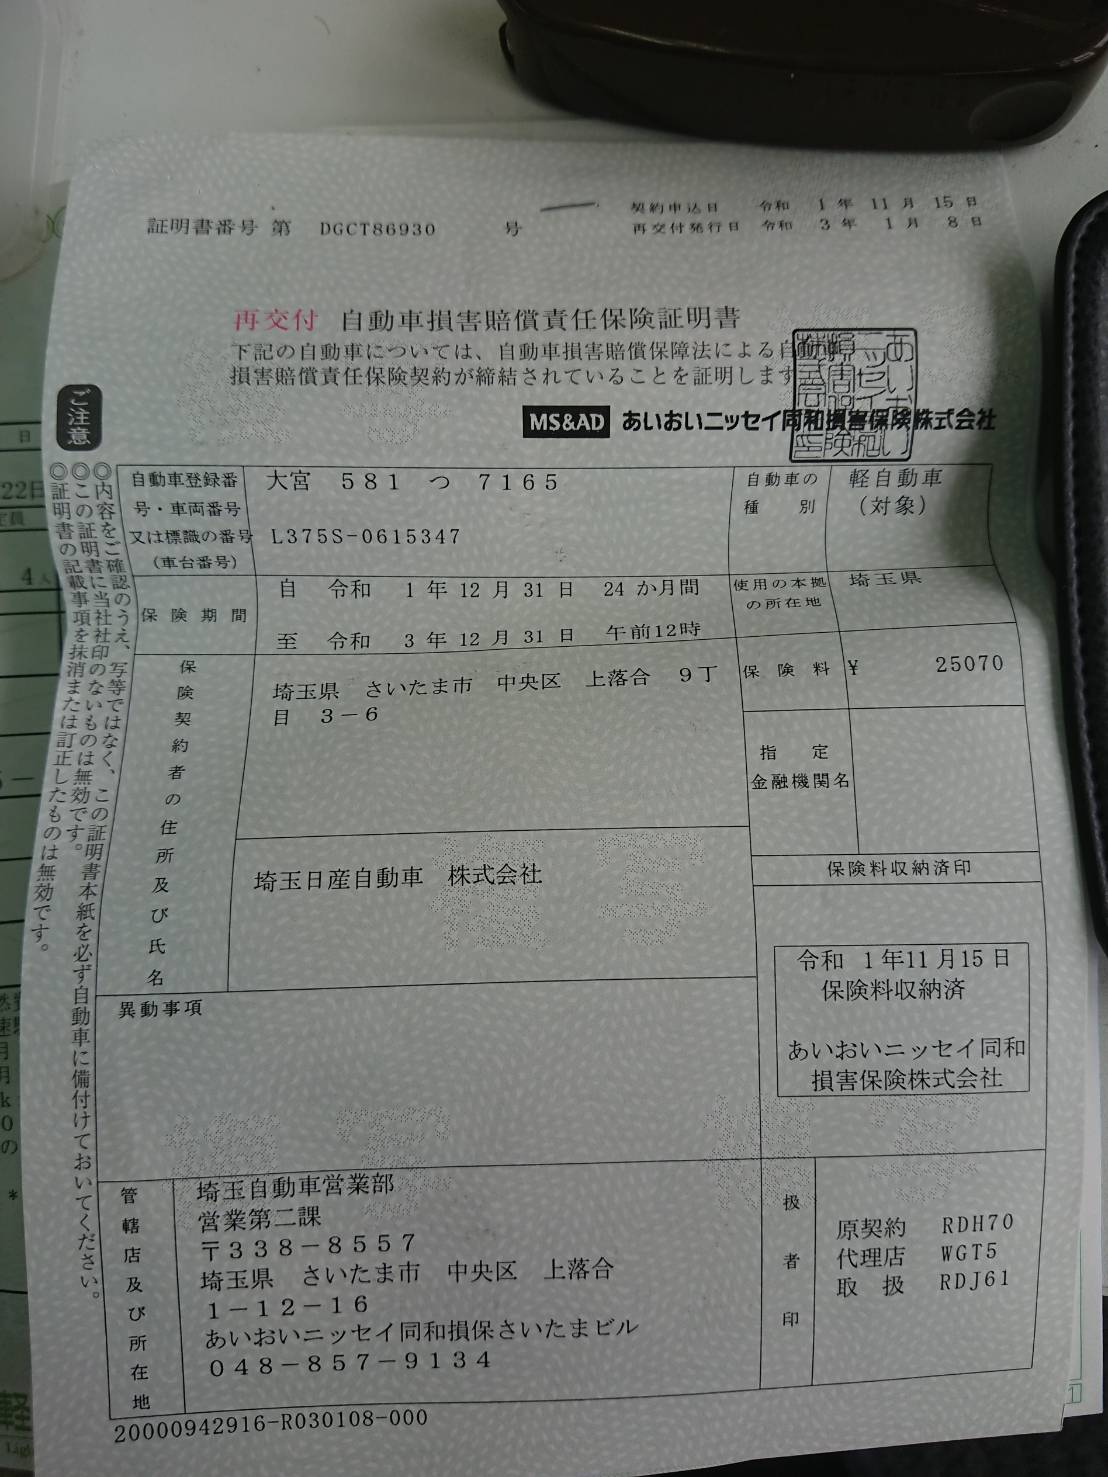 証明書番号 第 DGCT86930 号
契約申込日 令和 1年 11月 15日
再交付発行日 令和 3年 1月 8日
再交付 自動車損害賠償責任保険証明書
下記の自動車については、自動車
損害賠償責任保険契約が締結されていることを証明します
MS&AD あいおいニッセイ同和損害保険株式会社
ご注意
◎内容をご確認のうえ、写等ではなく、この証明書本紙を必ず自動車に備付けておいてください。
◎この証明書に当社社印のないものは無効です。
◎証明書の記載事項を抹消または訂正したものは無効です。
自動車登録番
号・車両番号
又は標識の番号
(車台番号)
大宮 581 つ 7165
L375S-0615347
自動車の
種別
軽自動車
(対象)
保険期間
自 令和 1年12月31日 24か月間
至 令和 3年12月31日 午前12時
使用の本拠
の所在地
埼玉県
保険契約者の住所及び氏名
埼玉県 さいたま市 中央区 上落合 9丁
目 3-6
埼玉日産自動車 株式会社
保険料 ¥ 25070
指定
金融機関名
保険料収納済印
令和 1年11月15日
保険料収納済
あいおいニッセイ同和
損害保険株式会社
異動事項
管轄店及び所在地
埼玉自動車営業部
営業第二課
〒338-8557
埼玉県 さいたま市 中央区 上落合
1-12-16
あいおいニッセイ同和損保さいたまビル
048-857-9134
扱者印
原契約 RDH70
代理店 WGT5
取扱 RDJ61
20000942916-R030108-000
日
22日
4人
軽